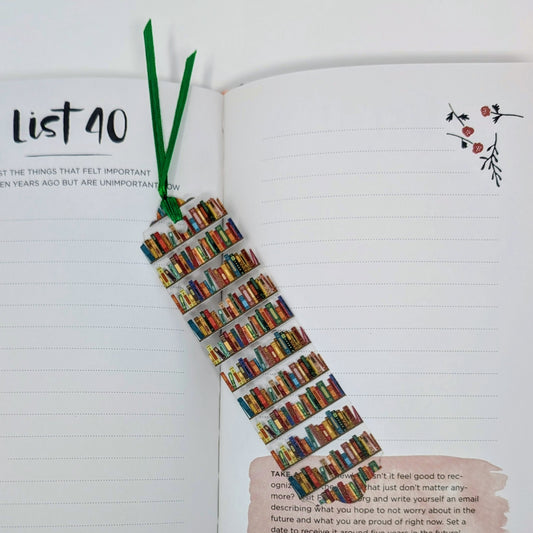 List 40
ST THE THINGS THAT FELT IMPORTANT
EN YEARS AGO BUT ARE UNIMPORTANT NOW
TAKE
n't it feel good to rec-
that just don't matter any-
more?
and write yourself an email
describing what you hope to not worry about in the
future and what you are proud of right now. Set a
date to receive it around five years in the future!